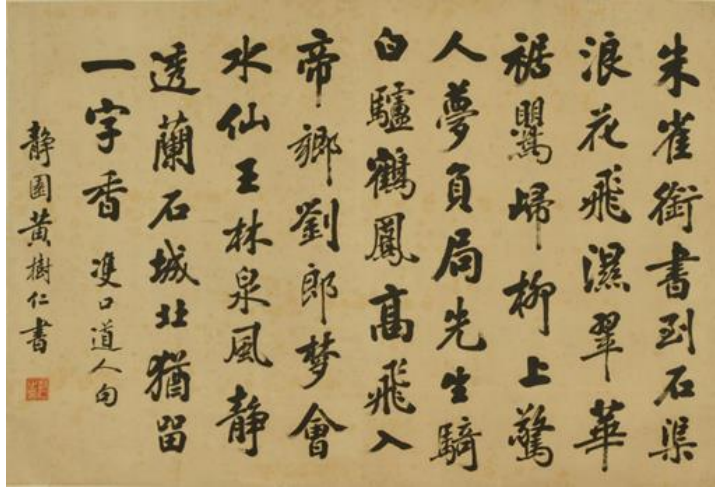 朱雀銜書到石渠
浪花飛濕翠華
裾鸎歸柳上驚
人夢負局先生騎
白驢鶴鳳高飛入
帝鄉劉郎梦會
水仙王林泉風静
透蘭石城北猶留
一字香 雙口道人句
静園黄樹仁書